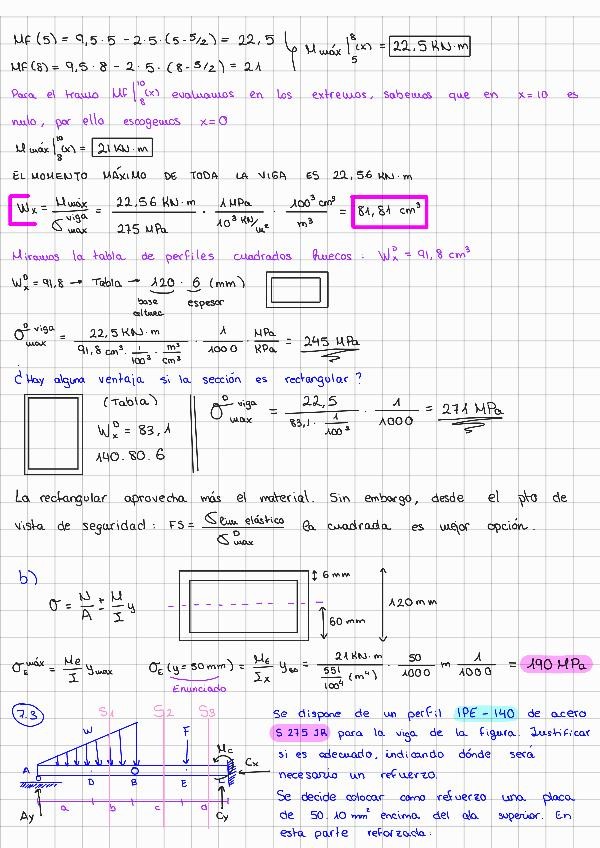 MF(5) = 9,5·5 - 2·5·(5-5/2) = 22,5
Mmáx|⁸₅(x) = 22,5 KN·m
MF(8) = 9,5·8 - 2·5·(8-5/2) = 21
Para el tramo MF|¹⁰₈(x) evaluamos en los extremos, sabemos que en x=10 es
nulo, por ello escogemos x=0
Mmáx|¹⁰₈(x) = 21 KN·m
EL MOMENTO MÁXIMO DE TODA LA VIGA ES 22,56 KN·m
Wx = Mmáx / σ viga max = 22,56 KN·m / 275 MPa · 1 MPa / 10³ KN/m² · 100³ cm³ / m³ = 81,81 cm³
Miramos la tabla de perfiles cuadrados huecos: Wxᴰ = 91,8 cm³
Wxᴰ = 91,8 → Tabla → 120 · 6 (mm)
base altura espesor
σᴰ viga max = 22,5 KN·m / 91,8 cm³ · 1/100³ · m³/cm³ · 1/1000 · MPa/KPa = 245 MPa
¿Hay alguna ventaja si la sección es rectangular?
(Tabla)
Wxᴰ = 83,1
140.80.6
σᴰ viga max = 22,5 / 83,1 · 1/100³ · 1/1000 = 271 MPa
La rectangular aprovecha más el material. Sin embargo, desde el pto de
vista de seguridad: FS = σ lim elástico / σᴰ máx la cuadrada es mejor opción.
b)
σ = N/A ± M/I y
6 mm
120 mm
60 mm
σE máx = ME/I ymax σE (y = 50mm) = ME/Ix y50 = 21 KN·m / 551/100⁴ (m⁴) · 50/1000 m 1/1000 = 190 MPa
Enunciado
7.3
S1 S2 S3
W F Mc
A D B E Cx
a b c d
Ay Cy
Se dispone de un perfil IPE-140 de acero
S 275 JR para la viga de la figura. Justificar
si es adecuado, indicando dónde será
necesario un refuerzo.
Se decide colocar como refuerzo una placa
de 50·10 mm² encima del ala superior. En
esta parte reforzada: